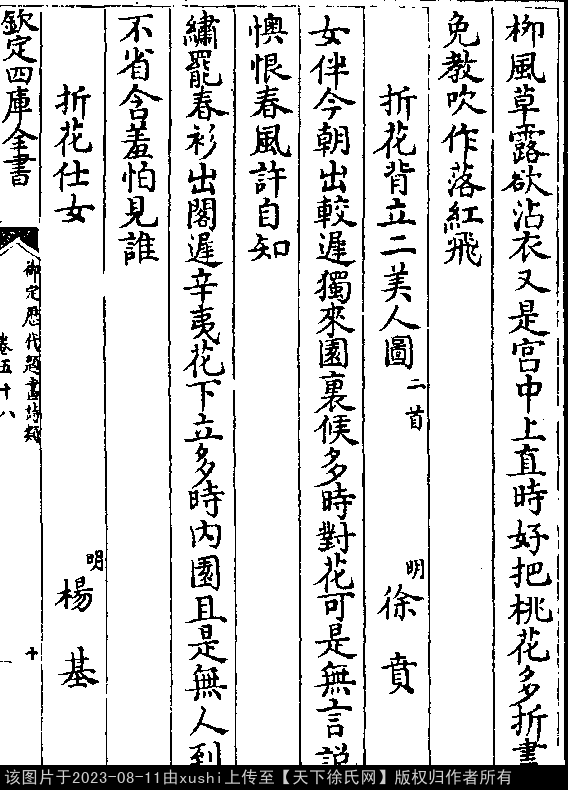 柳風草露欲沾衣又是宮中上直時好把桃花多折盡
免教吹作落紅飛
折花背立二美人圖 二首 明 徐賁
女伴今朝出較遲獨來園裏候多時對花可是無言説
懊恨春風許自知
繡罷春衫出閣遲辛夷花下立多時内園且是無人到
不省含羞怕見誰
折花仕女 明 楊基
欽定四庫全書
御定歷代題畫詩類
卷五十八
十
该图片于2023-08-11由xushi上传至【天下徐氏网】版权归作者所有